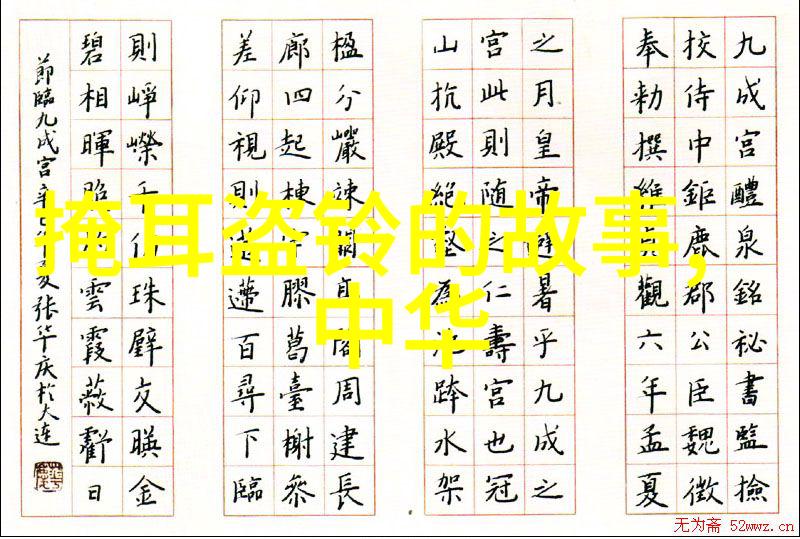 掩耳盗铃的故事,
中华
九成宮醴泉銘祕書監撿
挍侍中鉅鹿郡公臣魏徵
奉勑撰維貞觀六年孟夏
之月皇帝避暑乎九成之
宮此則随之仁壽宮也冠
山抗殿絕壑為池跨水架
楹分巖竦闕閣周建長
廊四起棟宇膠葛臺榭叅
差仰視則迢遰百尋下臨
則崢嶸千仞珠璧交暎金
碧相暉照灼雲霞蔽虧日
節臨九成宮辛年张华庆於大連
无为斋 52wwz.cn